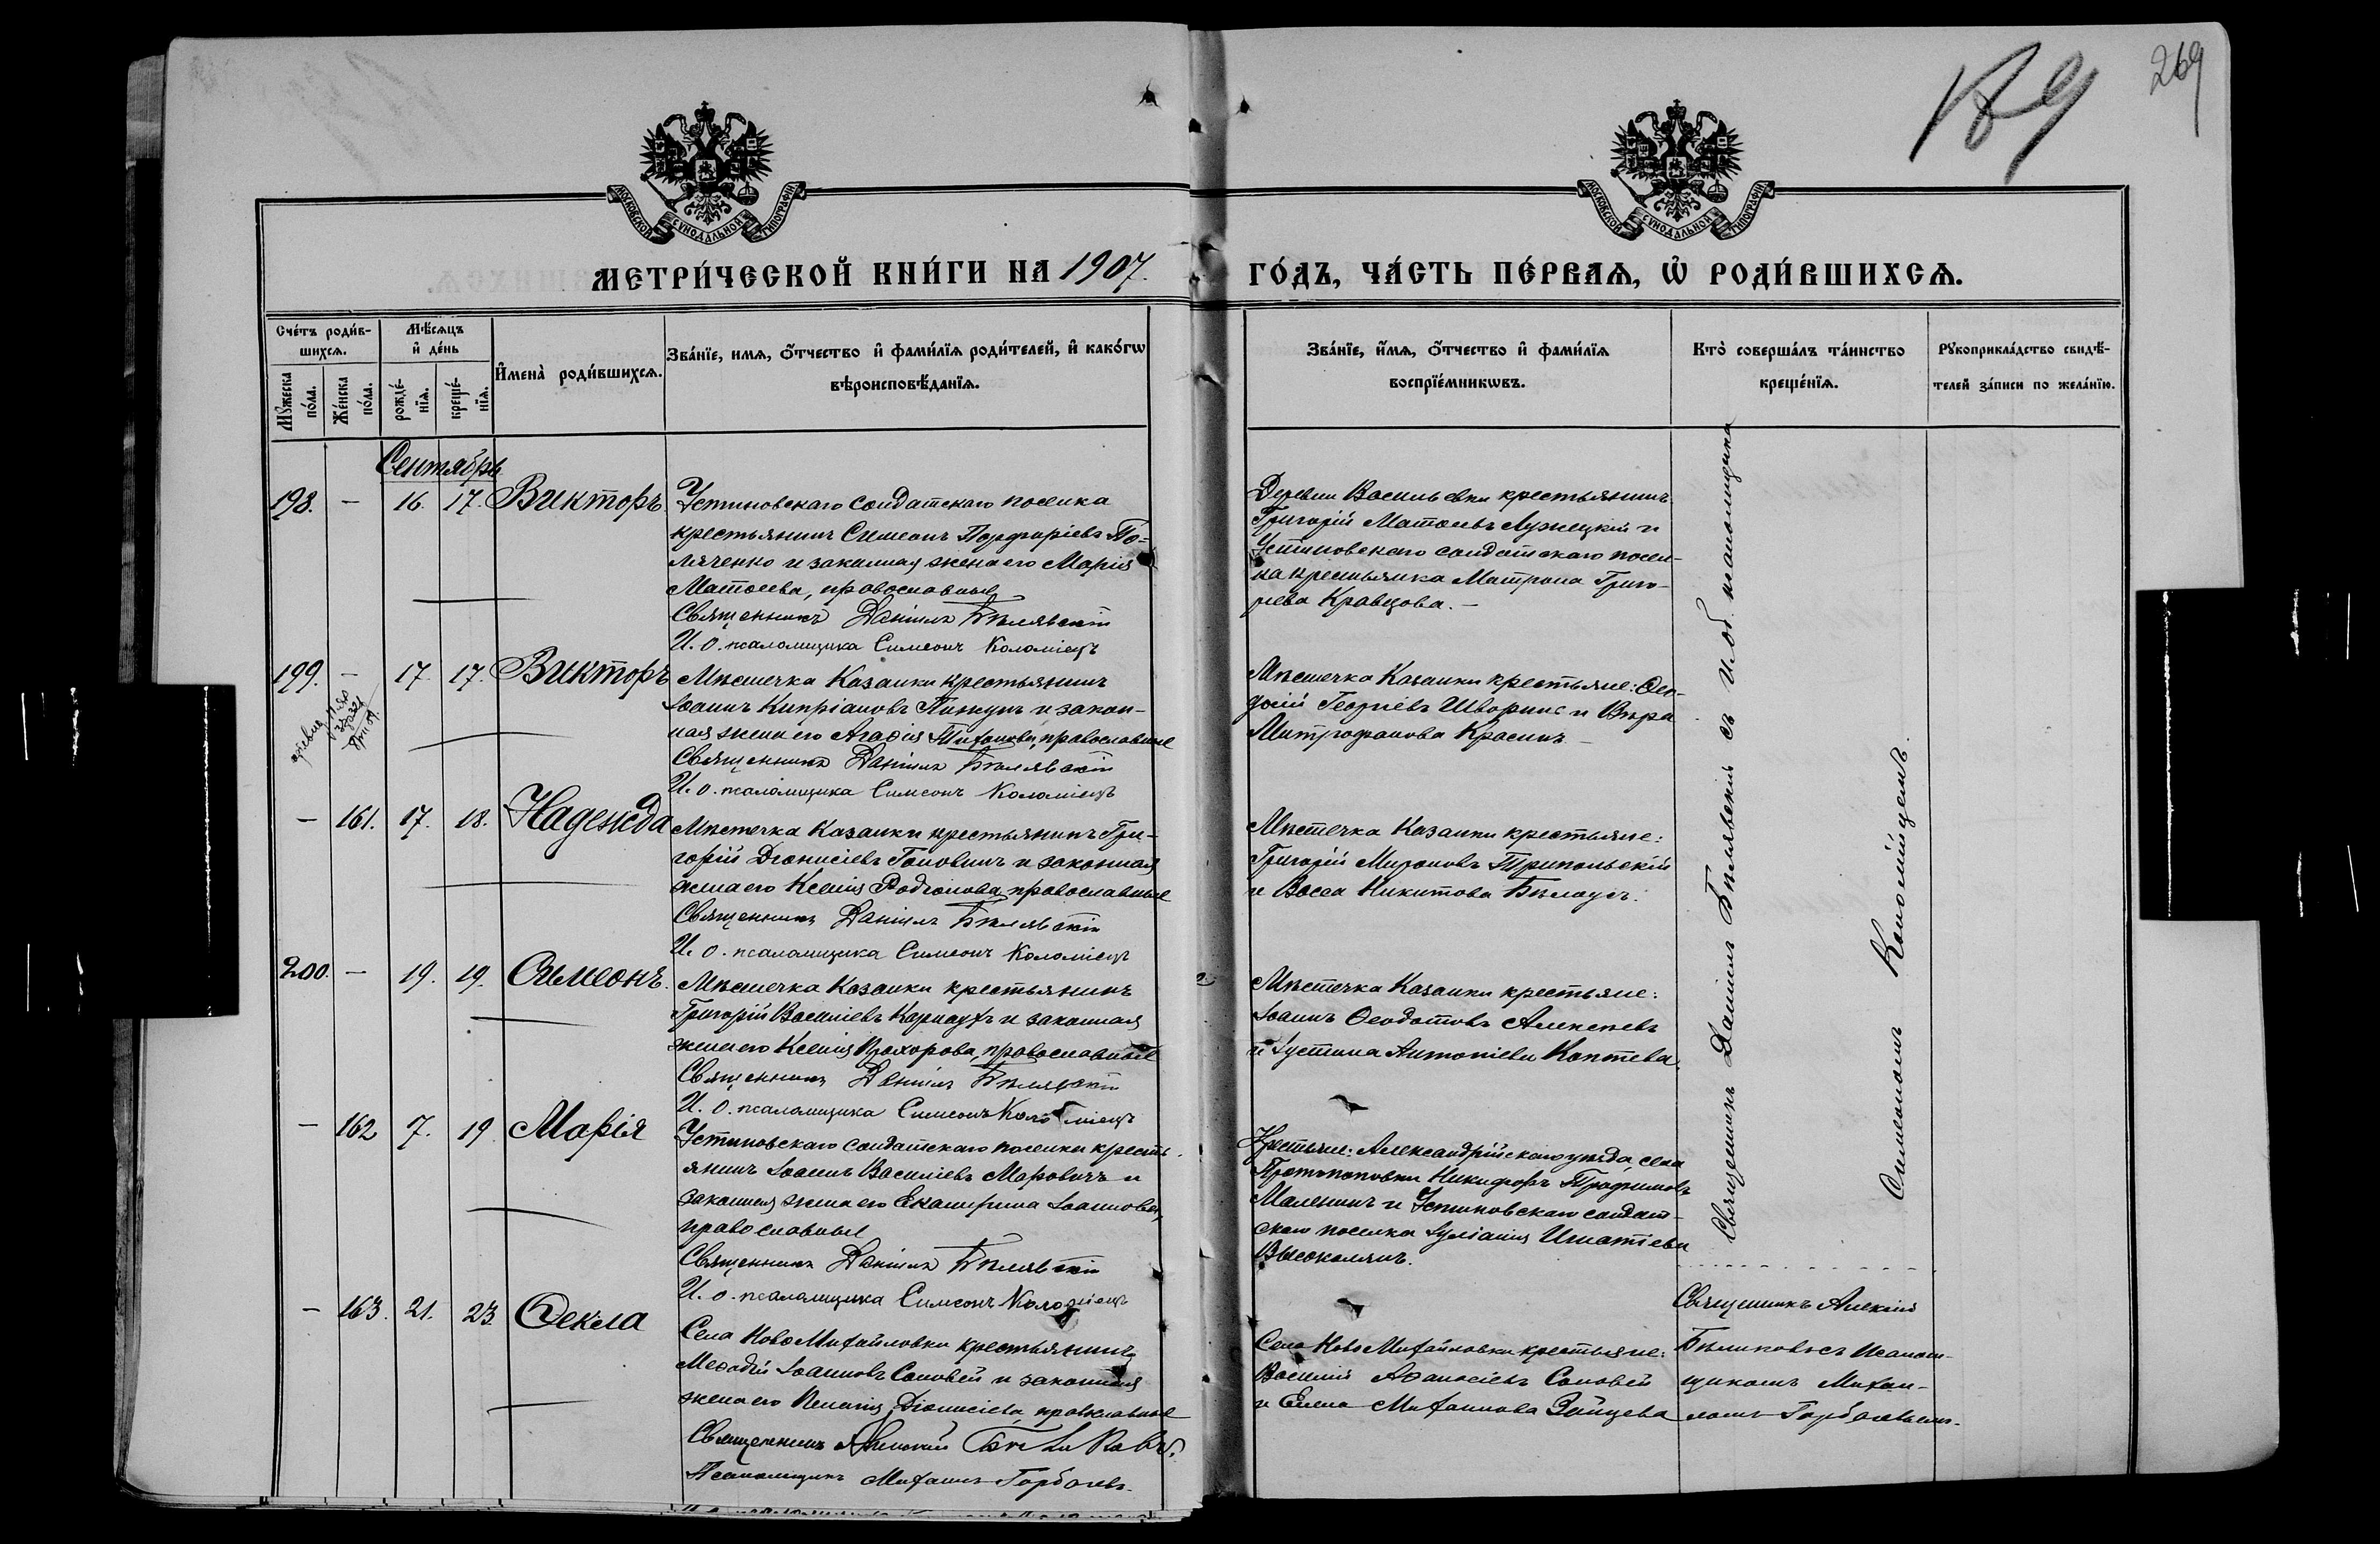 189
269
МОСКОВСКОЙ СУНОДАЛЬНОЙ ТИПОГРАФІИ
МОСКОВСКОЙ СУНОДАЛЬНОЙ ТИПОГРАФІИ
МЕТРИ́ЧЕСКОЙ КНИ́ГИ НА 1907. ГО́ДЪ, ЧА́СТЬ ПЕ́РВАЯ, Ѽ РОДИ́ВШИХСѦ.
Сче́тъ роди́в-
шихсѧ.
Мꙋ́жеска по́ла.
Же́нска по́ла.
Мѣ́сѧцъ и де́нь
рожде́-нїѧ.
креще́-нїѧ.
И҆мена̀ роди́вшихсѧ.
Зва́нїе, имѧ, ѻ҆́тчество и҆ фами́лїѧ роди́телей, и҆ како́гѡ
вѣроисповѣ́данїѧ.
Зва́нїе, и҆́мѧ, ѻ҆́тчество и҆ фами́лїѧ
воспрїе́мникѡвъ.
Кто̀ соверша́лъ та́инство
креще́нїѧ.
Рꙋкоприкла́дство свидѣ́-
телей за́писи по жела́нїю.
Сентябрь
198. — 16. 17. Викторъ
Устиновскаго солдатскаго поселка
крестьянинъ Симеонъ Порфиріевъ По-
ляченко и законная жена его Марія
Матѳеева, православные
Священникъ Даніилъ Бѣлявскій
И. о. псаломщика Симеонъ Коломіецъ
Деревни Васильевки крестьянинъ
Григорій Матѳеевъ Лужецкій и
Устиновскаго солдатскаго посел-
ка крестьянка Матрона Григо-
рьева Кравцова. —
199. — 17. 17. Викторъ
Мѣстечка Казанки крестьянинъ
Іоаннъ Кипріановъ Пинчукъ и закон-
ная жена его Агаѳія Михаилова, православные
Священникъ Даніилъ Бѣлявскій
И. о. псаломщика Симеонъ Коломіецъ
Мѣстечка Казанки крестьяне: Ѳео-
досій Георгіевъ Шворинъ и Вѣра
Митрофанова Красинъ —
— 161. 17. 18. Надежда
Мѣстечка Казанки крестьянинъ Гри-
горій Діонисіевъ Головинъ и законная
жена его Ксенія Родіонова, православные
Священникъ Даніилъ Бѣлявскій
И. о. псаломщика Симеонъ Коломіецъ
Мѣстечка Казанки крестьяне:
Григорій Мироновъ Трипольскій
и Васса Никитова Бѣлоусъ.
200. — 19. 19. Симеонъ.
Мѣстечка Казанки крестьянинъ
Григорій Василіевъ Карнаухъ и законная
жена его Ксенія Прохорова, православные
Священникъ Даніилъ Бѣлявскій
И. о. псаломщика Симеонъ Коломіецъ
Мѣстечка Казанки крестьяне:
Іоаннъ Ѳеодотовъ Алексѣевъ
и Іустина Антоніева Коптева.
— 162 7. 19 Марія
Устиновскаго солдатскаго поселка кресть-
янинъ Іоаннъ Василіевъ Маровичъ и
законная жена его Екатерина Іоаннова,
православные
Священникъ Даніилъ Бѣлявскій
И. о. псаломщика Симеонъ Коломіецъ
Крестьяне: Александрійскаго уѣзда, села
Протопоповки Никифоръ Трофимовъ
Маленинъ и Устиновскаго солдат-
скаго поселка Іуліанія Игнатіева
Высоколянъ.
Священникъ Даніилъ Бѣлявскій съ И. об. псаломщика
Симеономъ Коломійцемъ.
— 163. 21. 23. Ѳекла
Села НовоМихайловки крестьянинъ
Меѳодій Іоанновъ Соловей и законная
жена его Пелагія Діонисіева, православные
Священникъ Алексій Бѣликовъ.
Псаломщикъ Михаилъ Горбачевъ.
Села НовоМихайловки крестьяне:
Василій Аѳанасіевъ Соловей
и Елена Михаилова Зайцева
Священникъ Алексій
Бѣликовъ съ псалом-
щикомъ Михаи-
ломъ Горбачевымъ.